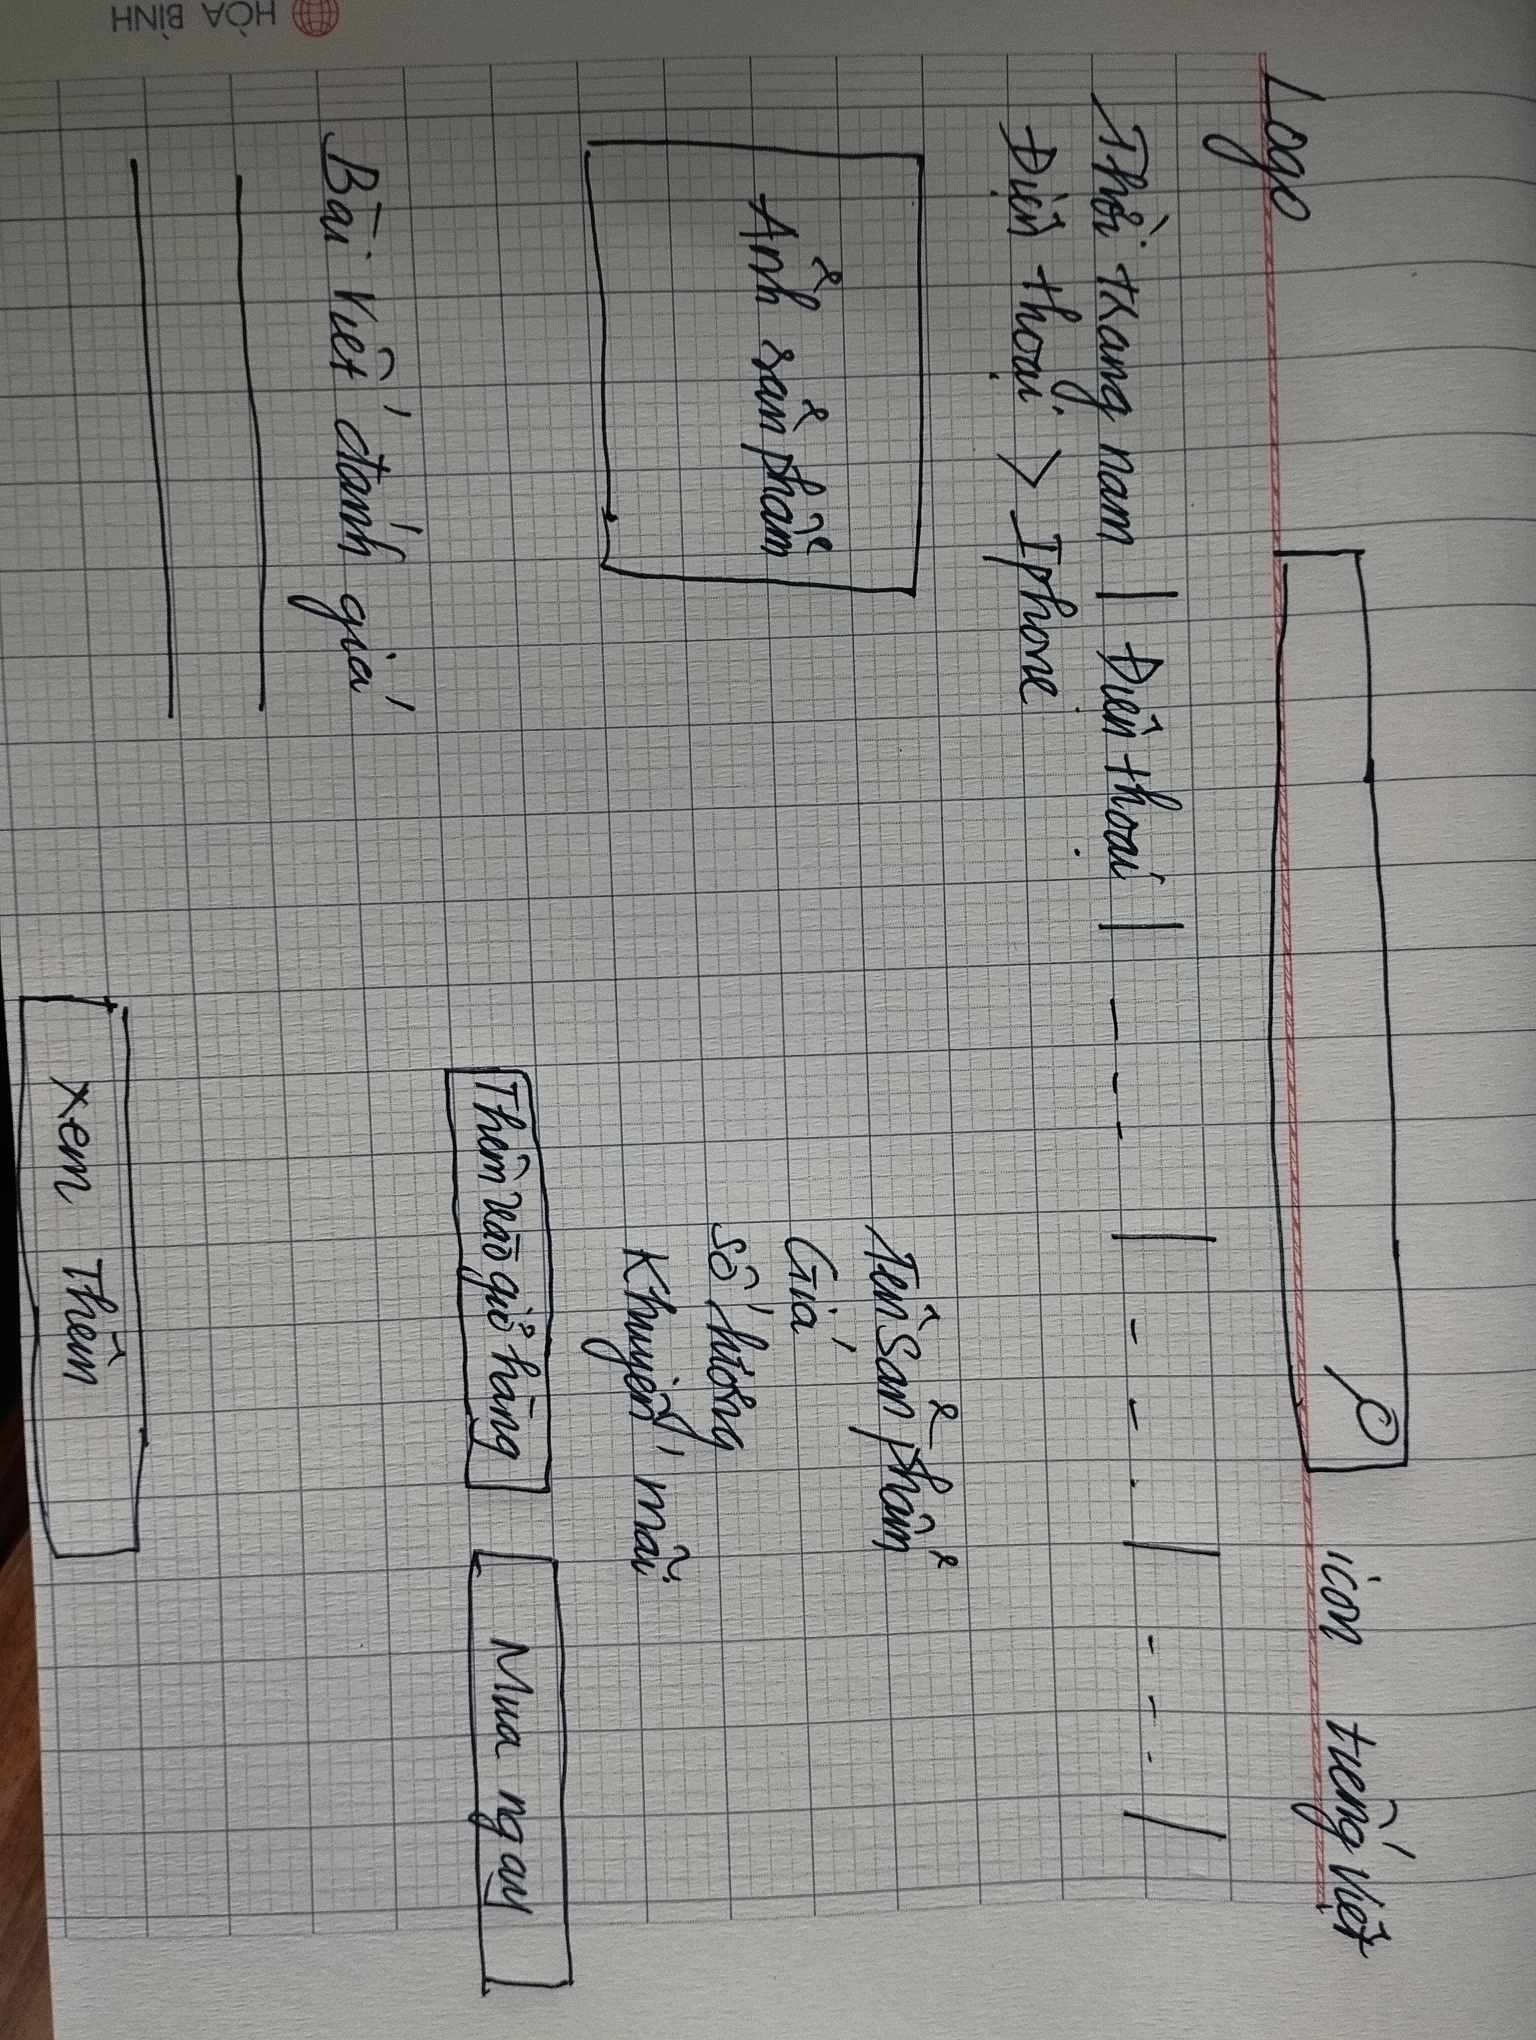 Logo
icon tiếng việt
Thời trang nam | Điện thoại | - - - | - - - | - - - |
Điện thoại > Iphone
Ảnh sản phẩm
Tên sản phẩm
Giá
số lượng
Khuyến mãi
Thêm vào giỏ hàng
Mua ngay
Bài viết đánh giá
Xem Thêm
HÒA BÌNH